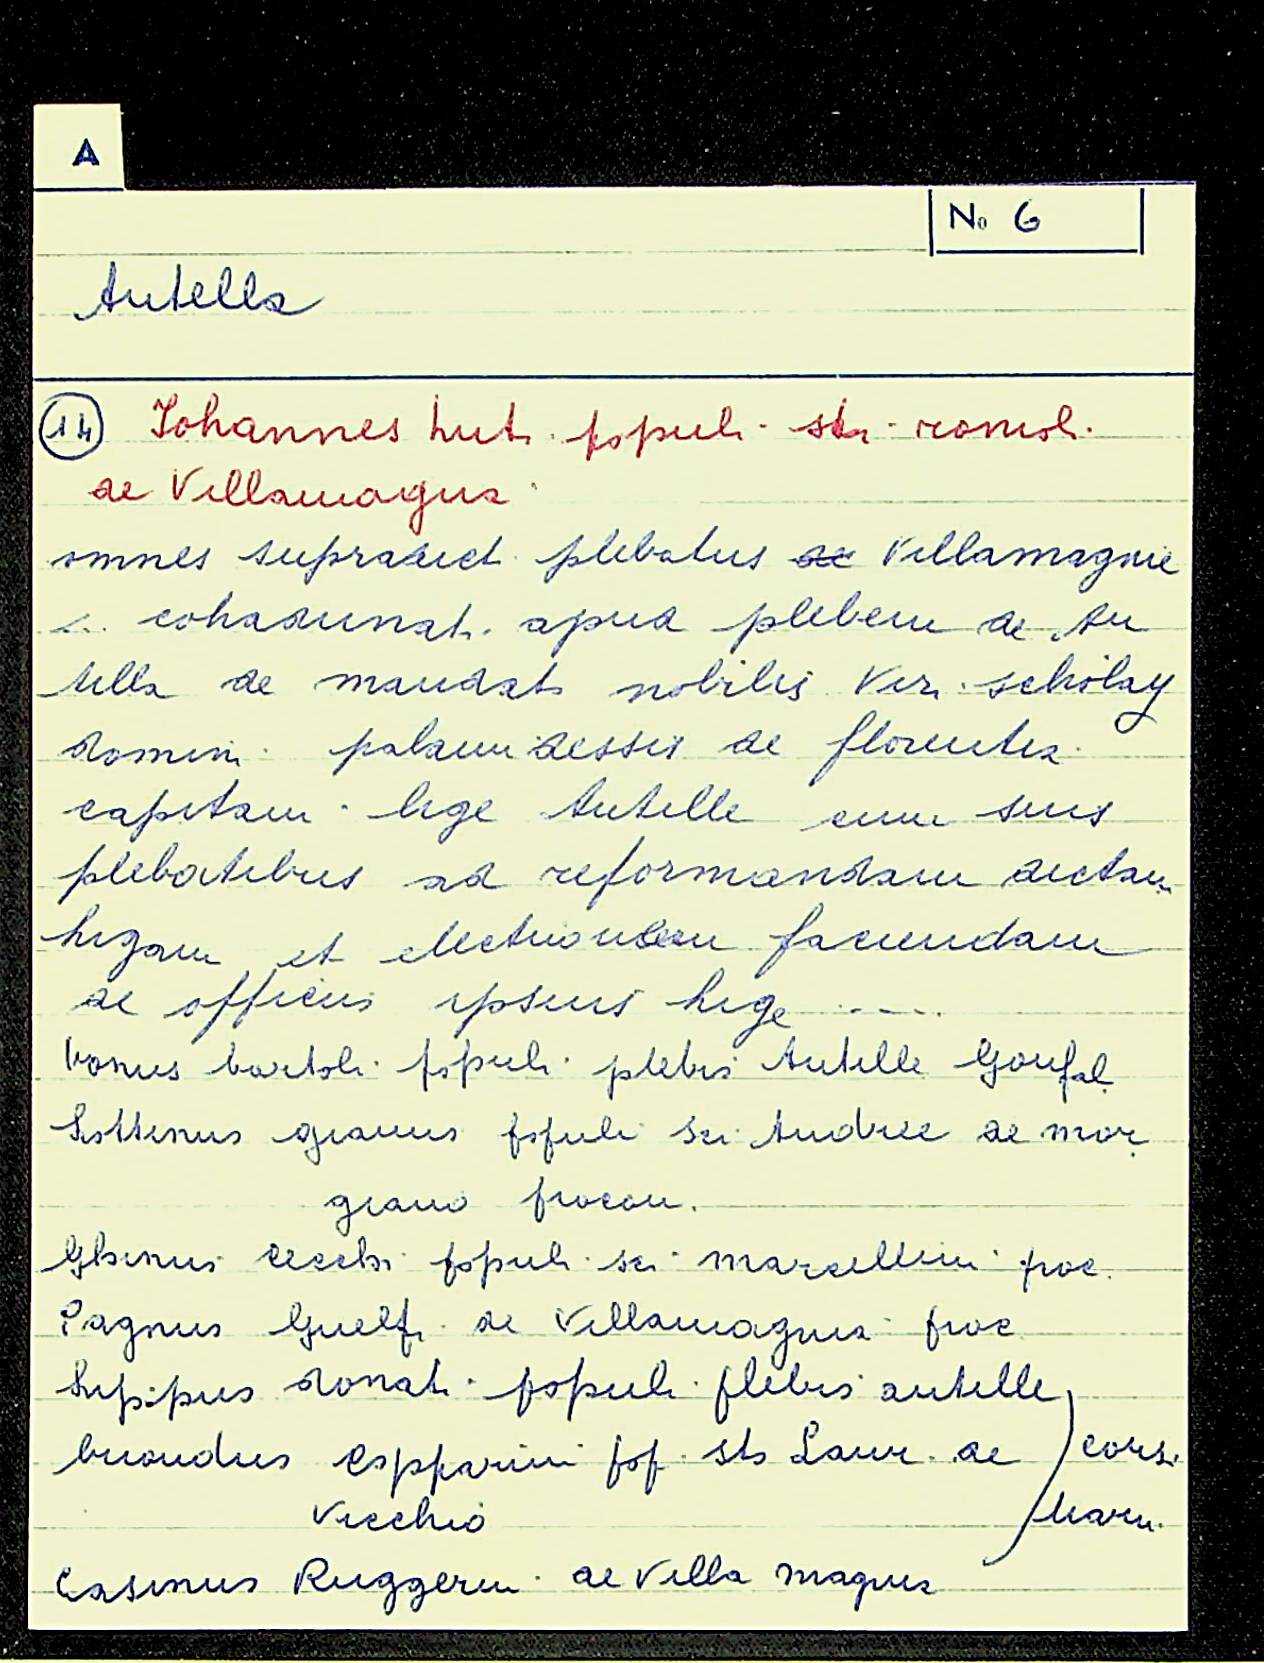 A
No 6
Antella
14 Iohannes buti. populi. sti. romoli.
de Villamagna
omnes supradict. plebatus de Villamagnie
... cohadunati. apud plebem de An
tella de mandato nobilis Viri. scholay
domini. palamidessis de florentia.
capitani. lige Antelle cum suis
plebatibus ad reformandam dictam
ligam et electionem faciendam
de officiis ipsius lige .....
bonus bartoli. populi. plebis Antelle Gonfal.
populi sci. Andree de mor
grano procon.
Ghinus cecchi. populi. sci. marcellini proc.
Pagnus Guelfi. de Villamagna proc
Lippus donati. populi. plebis antelle
capparini pop. sti Laur. de cors.
Vicchio
Casinus Ruggerii. de Villa magna